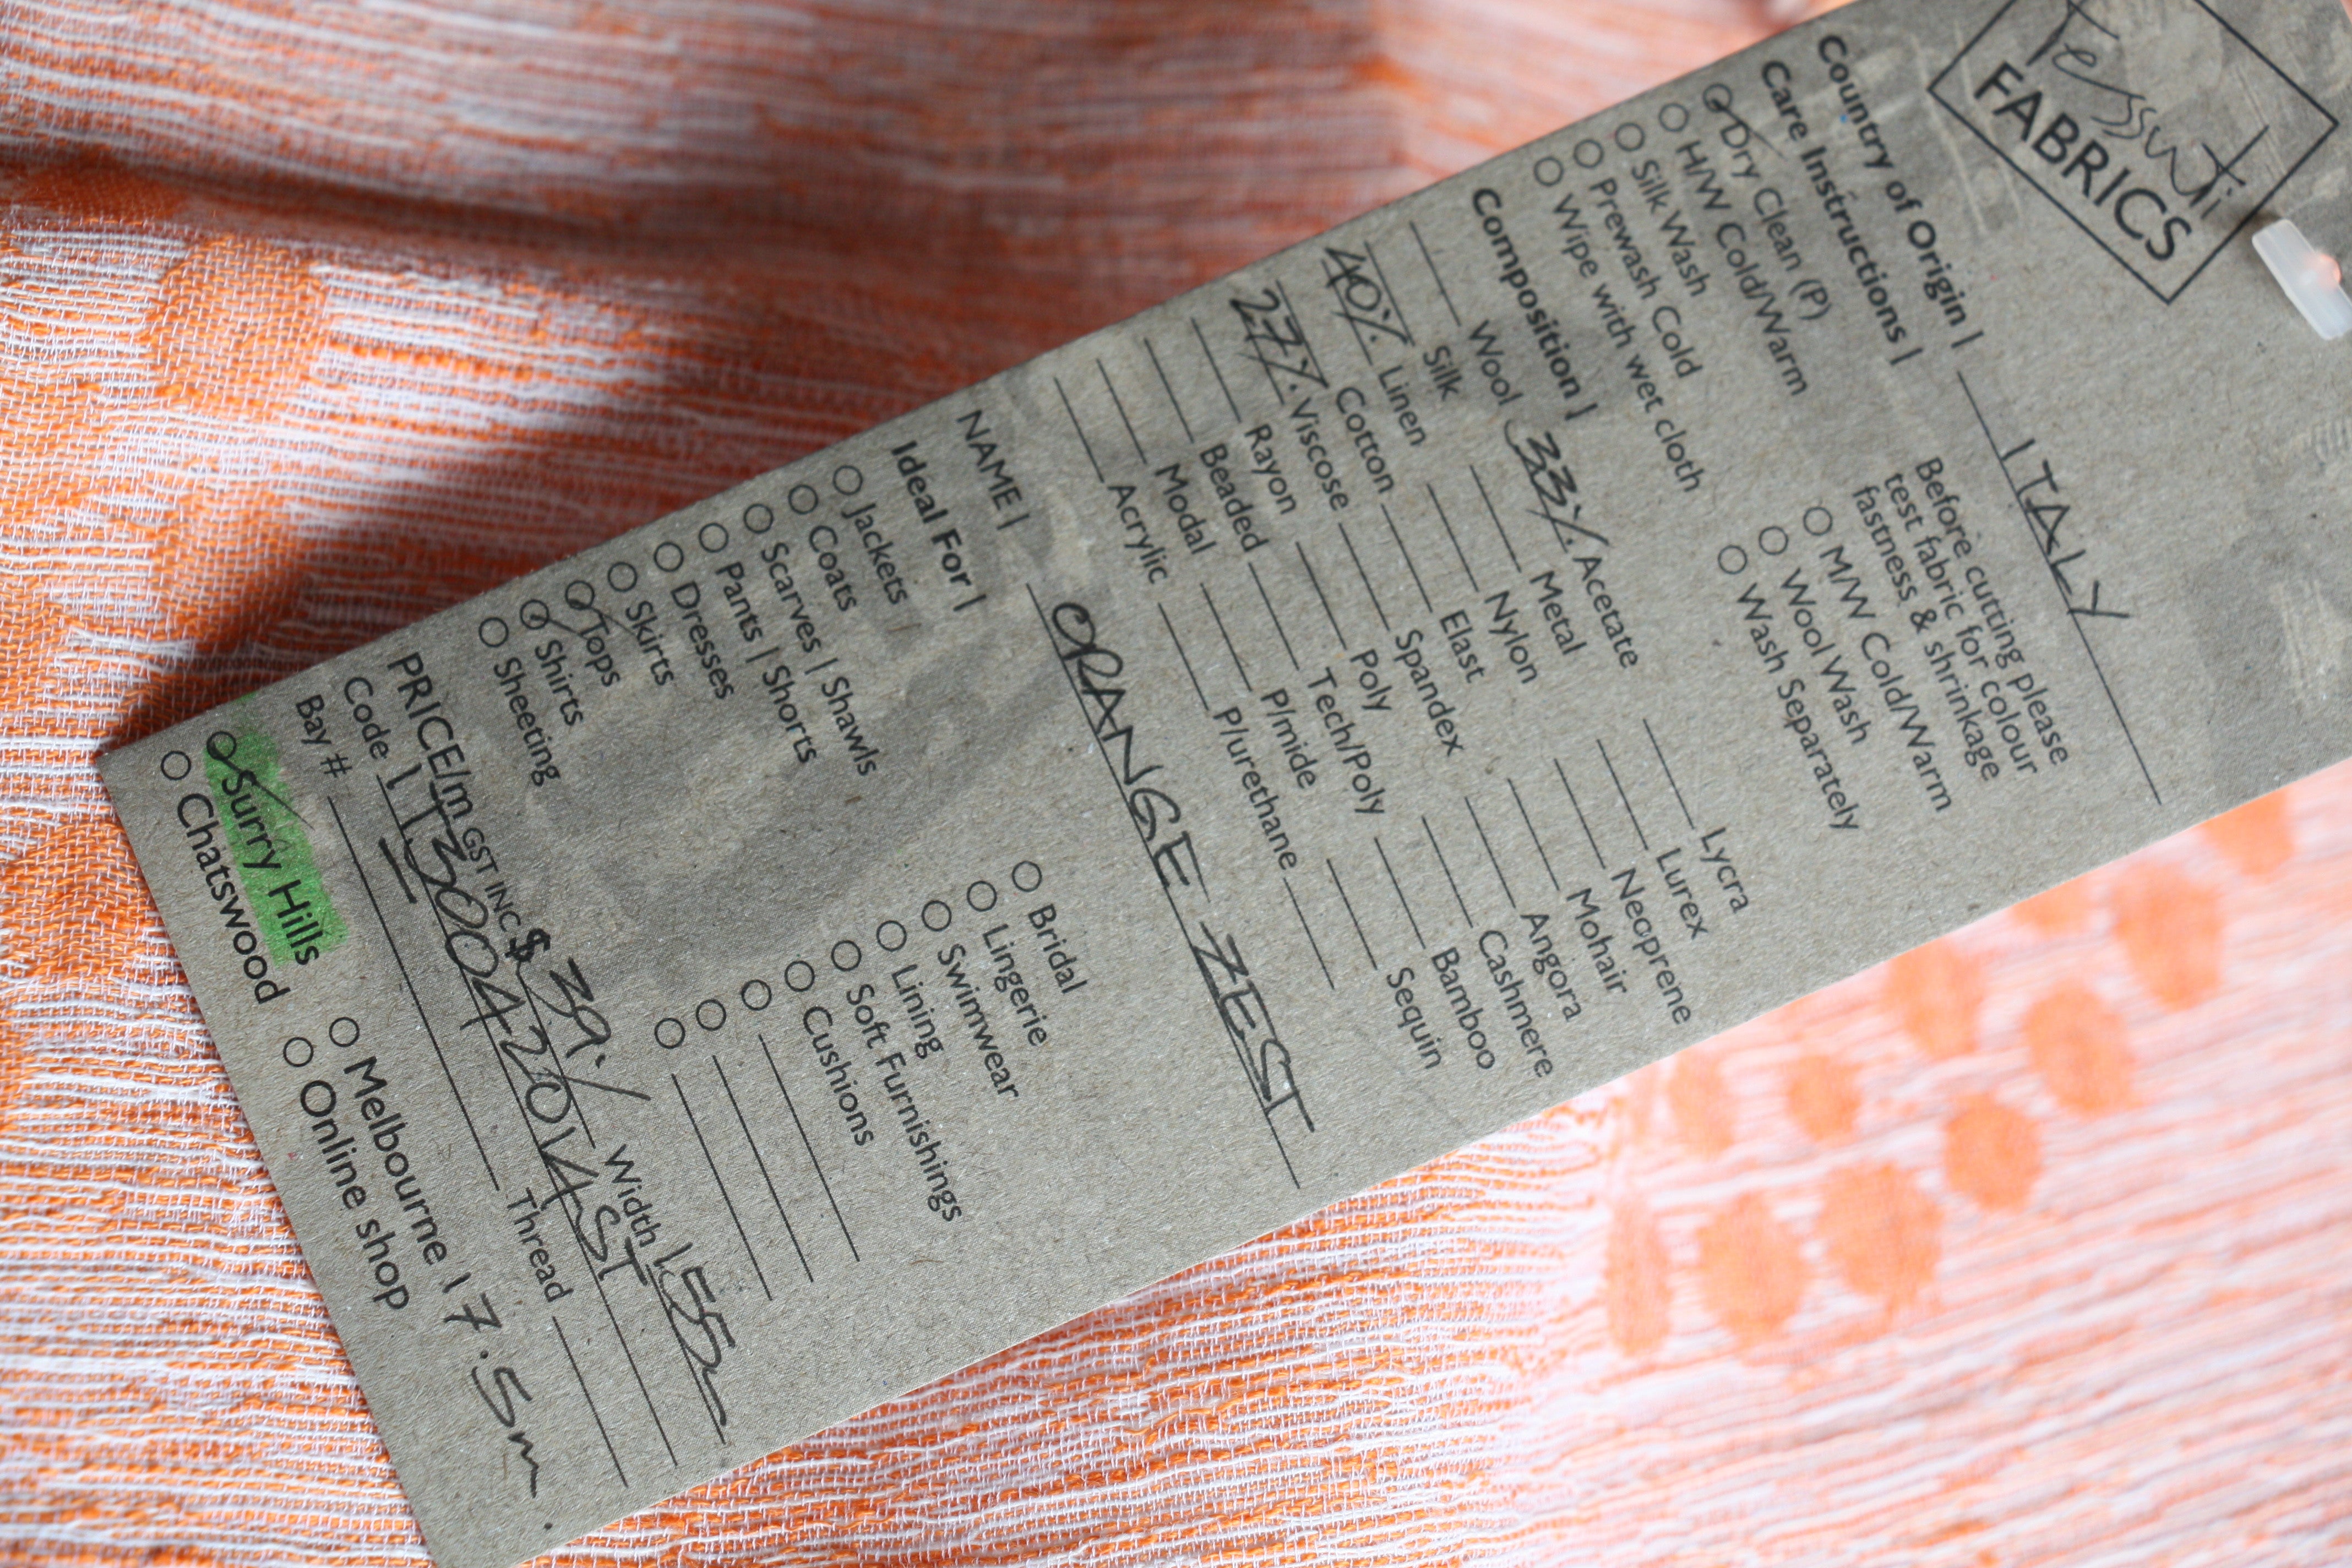 Tessuti
FABRICS
Country of Origin | ITALY
Care Instructions | Before cutting please
test fabric for colour
fastness & shrinkage
Dry Clean (P)
H/W Cold/Warm M/W Cold/Warm
Silk Wash Wool Wash
Prewash Cold Wash Separately
Wipe with wet cloth
Composition |
Wool 33% Acetate Lycra
Silk Metal Lurex
40% Linen Nylon Neoprene
Cotton Elast Mohair
27% Viscose Spandex Angora
Rayon Poly Cashmere
Beaded Tech/Poly Bamboo
Modal P/mide Sequin
Acrylic P/urethane
NAME | ORANGE ZEST
Ideal For |
Jackets Bridal
Coats Lingerie
Scarves | Shawls Swimwear
Pants | Shorts Lining
Dresses Soft Furnishings
Skirts Cushions
Tops
Shirts
Sheeting
PRICE/m GST INC $39./ Width 155
Code IT30042014ST
Bay # Thread
Surry Hills Melbourne 17.5m
Chatswood Online shop